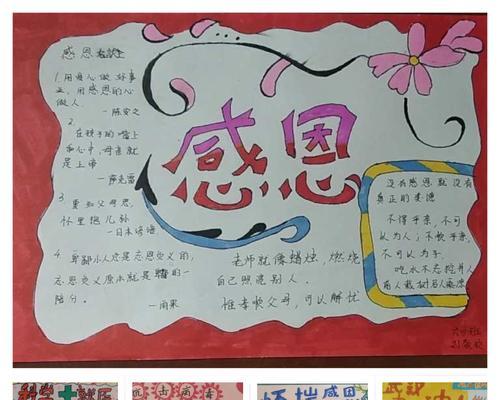 感恩
感恩
1.用爱心做好事
业，用感恩的心
做人。
—陈安之
2.
在孩子的嘴上
和心中，母亲就
是上帝
3.
要知父母恩，
怀里抱儿孙
—日本谚语
4.卑鄙小人总是忘恩负义的，
忘恩负义原本就是卑鄙的一
部分。
—雨果
老师就像蜡烛，燃烧
自己照亮别人。
惟孝顺父母，可以解忧
没有感恩就没有
真正的美德
不得乎亲，不可
以为人；不顺乎亲，
不可以为子。
吃水不忘挖井人
前人栽树后人乘凉
科学
感恩
武汉